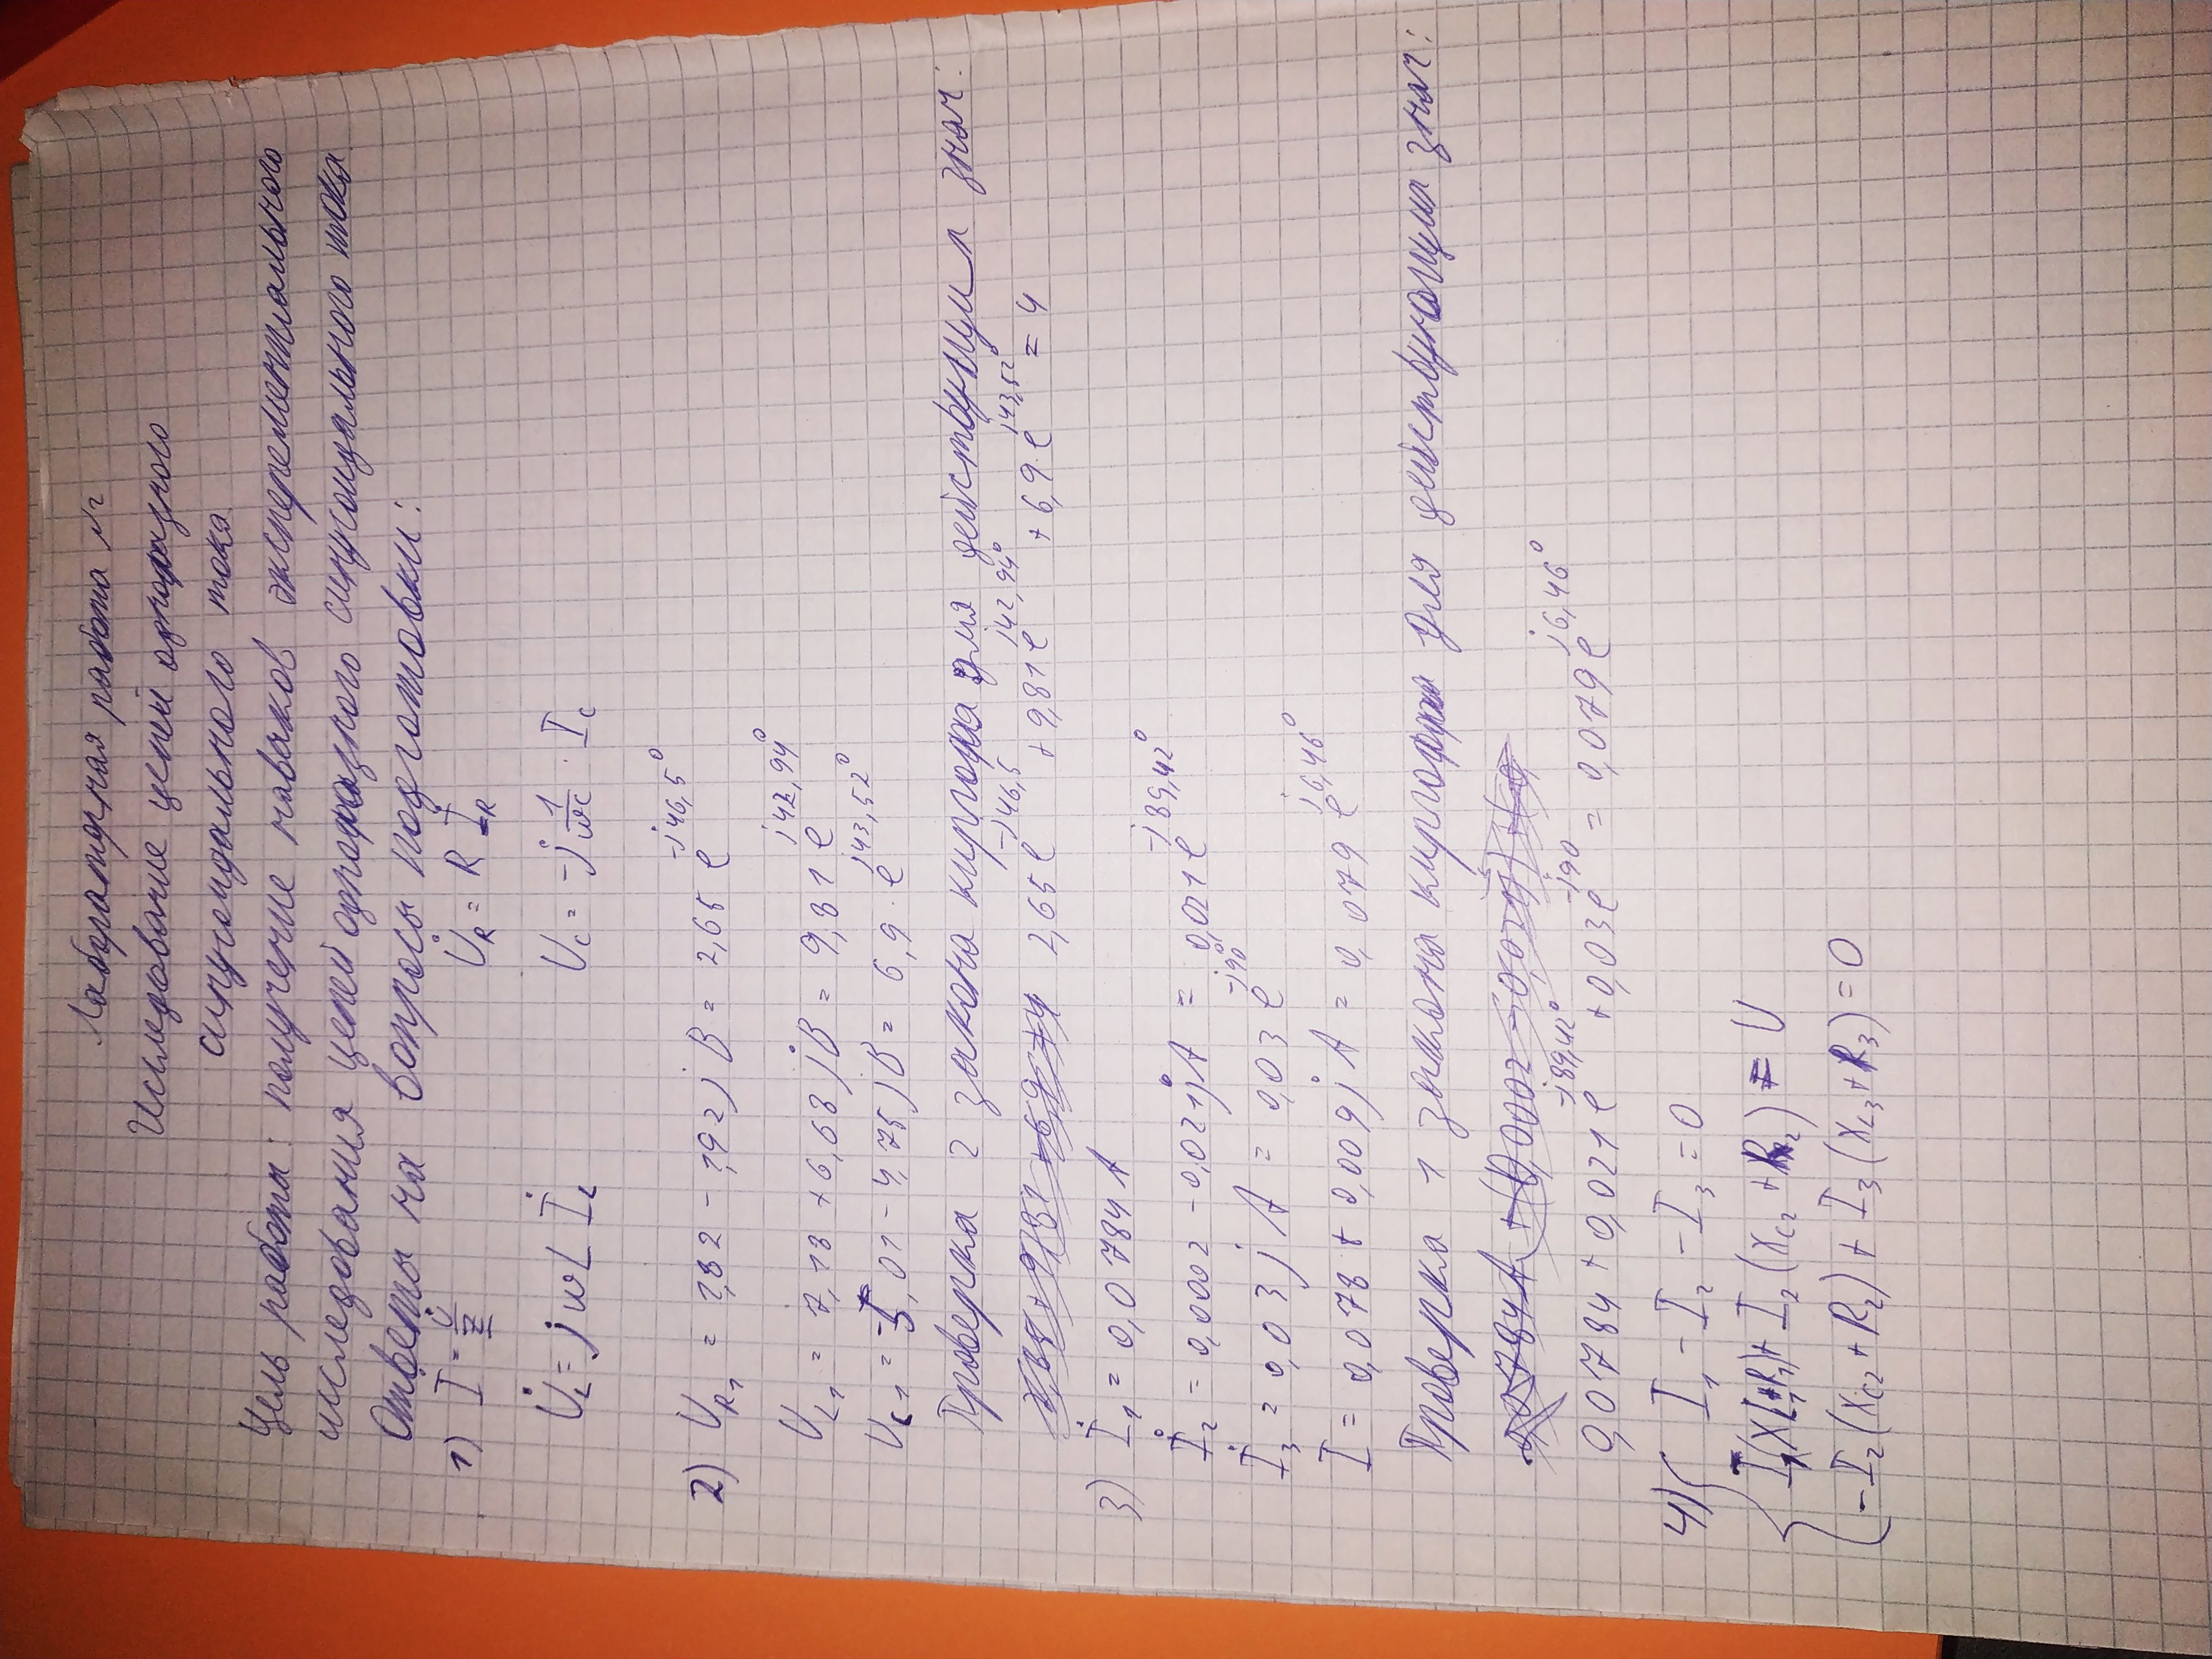 Лабораторная работа №2
Исследование цепей однофазного
синусоидального тока.
Цель работы: получение наваков эксперементального
исследования цепей однофазного синусоидального тока.
Ответы на вопросы подготовки:
1) İ = U̇/Z̲   U̇_R = R İ_R
U̇_L = jωL İ_L   U_C = -j 1/(ωC) · I_C
2) U_R1 = 1,82 - 1,92j В = 2,65 e^(-j46,5°)
U_L1 = 7,18 + 6,68j В = 9,81 e^(j42,94°)
U_C1 = -5,01 - 4,75j В = 6,9 · e^(j43,52°)
Проверка 2 закона киргофа для действующих знач:
2,65 e^(-j46,5) + 9,81 e^(j42,94°) + 6,9 · e^(j43,52°) = 4
3) İ_1 = 0,0784 А
İ_2 = 0,0002 - 0,021j А = 0,021 e^(-j89,42°)
İ_3 = 0,03j А = 0,03 e^(-j90°)
I = 0,078 + 0,009j А = 0,079 e^(j6,46°)
Проверка 1 закона киргоффа для действующих знач:
0,0784 + 0,021 e^(-j89,42°) + 0,03 e^(-j90) = 0,079 e^(j6,46°)
4) { I_1 - I_2 - I_3 = 0
I_1(X_L1 + R_1) + I_2(X_C2 + R_2) = U
-I_2(X_C2 + R_2) + I_3(X_L3 + R_3) = 0